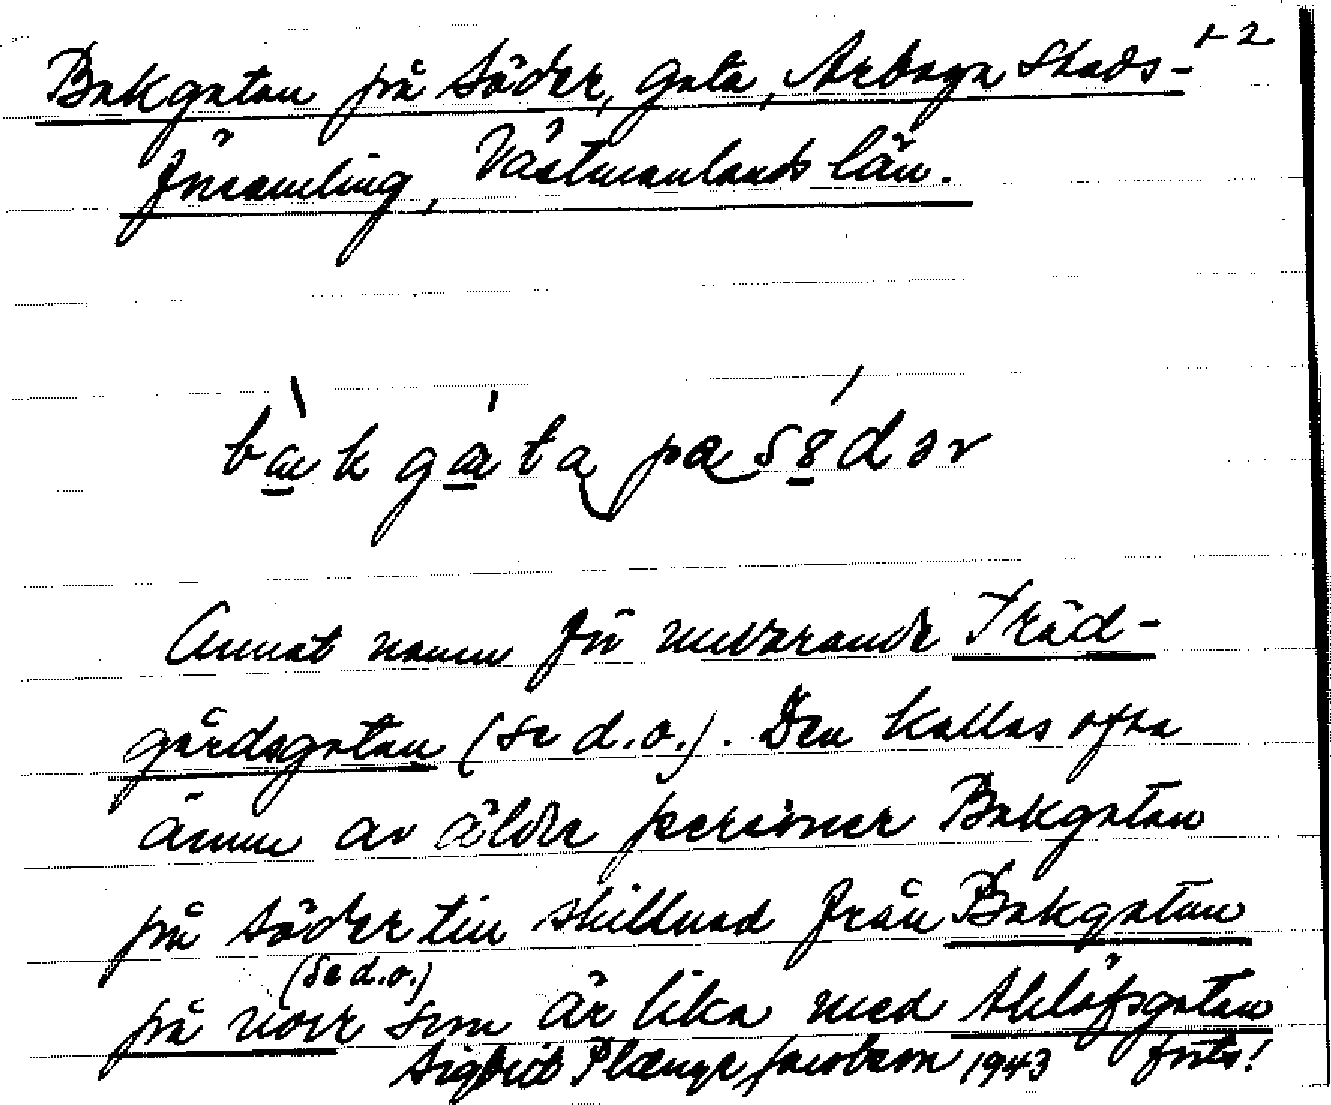 1-2
Bakgatan på Söder, gata, Arboga Stads-
församling, Västmanlands län.
bàkgàta pa sǿdər
Annat namn för nuvarande Träd-
gårdsgatan (se d.o.). Den kallas ofta
ännu av äldre personer Bakgatan
på Söder till skillnad från Bakgatan
(se d.o.)
på norr som är lika med Ahllöfsgatan
Sigbrit Plænge Jacobson 1943 forts!